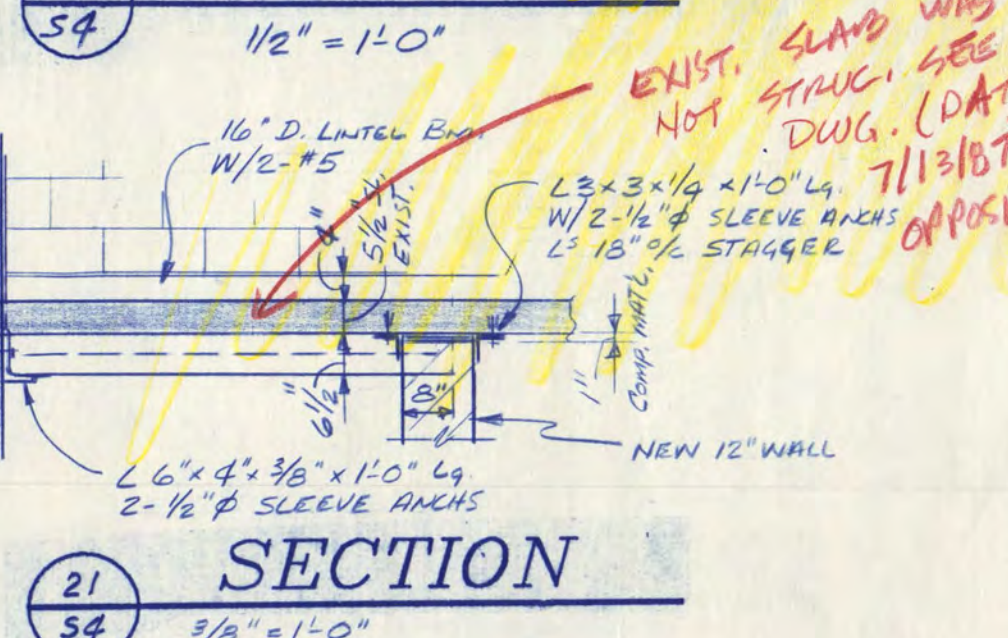 S4
1/2" = 1'-0"
EXIST. SLAB WAS
NOT STRUC. SEE
DWG. (DAT
7/13/87
OPPOSI
16" D. LINTEL BM.
W/2-#5
4"
5 1/2"
EXIST.
L 3 x 3 x 1/4 x 1'-0" Lg.
W/ 2-1/2"φ SLEEVE ANCHS
Lˢ 18" o/c STAGGER
1"
COMP. MATL.
6 1/2"
8"
NEW 12" WALL
L 6" x 4" x 3/8" x 1'-0" Lg.
2-1/2"φ SLEEVE ANCHS
21
S4
SECTION
3/8" = 1'-0"